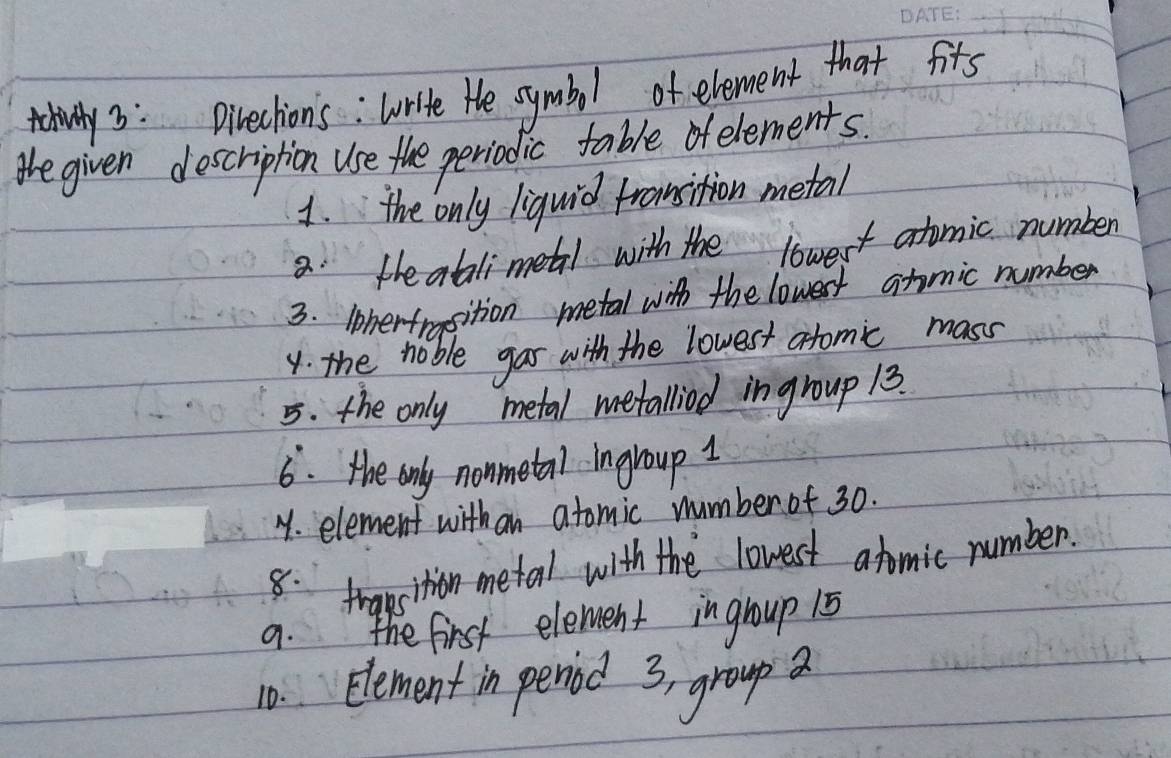 DATE:
Activity 3: Directions: Write the symbol of element that fits
the given description Use the periodic table of elements.
1. the only liquid transition metal
2. the akali metal with the lowest atomic number
3. metal with the lowest atomic number
4. the noble gas with the lowest atomic mass
5. the only metal metalliod in group 13.
6. the only nonmetal in group 1
7. element with an atomic number of 30.
8. transition metal with the lowest atomic number.
9. the first element in group 15
10. Element in period 3, group 2